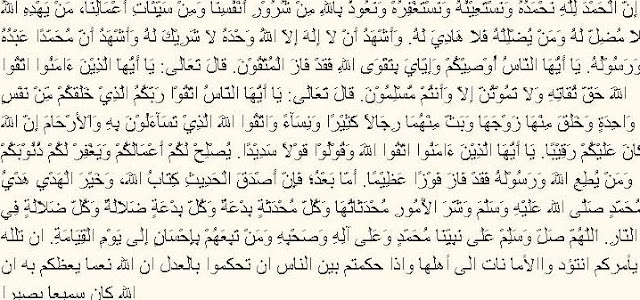 إِنّ الْحَمْدَ لِلَّهِ نَحْمَدُهُ وَنَسْتَعِيْنُهُ وَنَسْتَغْفِرُهْ وَنَعُوذُ بِاللهِ مِنْ شُرُوْرِ أَنْفُسِنَا وَمِنْ سَيّئَاتِ أَعْمَالِنَا، مَنْ يَهْدِهِ اللهُ
لاَ مُضِلّ لَهُ وَمَنْ يُضْلِلْهُ فَلاَ هَادِيَ لَهُ. وَأَشْهَدُ أَنْ لاَ إِلهَ إِلاّ اللهُ وَحْدَهُ لاَ شَرِيْكَ لَهُ وَأَشْهَدُ أَنّ مُحَمّدًا عَبْدُهُ
وَرَسُوْلُهُ. يَا أَيّهَا النَّاسُ أُوصِيْكُمْ وَإِيَّايَ بِتَقْوَى اللهِ فَقَدْ فَازَ الْمُتَّقُوْنَ. قَالَ تَعَالَى: يَا أَيُّهاَ الَّذِيْنَ ءَامَنُوا اتَّقُوا
اللهَ حَقَّ تُقَاتِهِ وَلاَ تَمُوْتُنَّ إِلاَّ وَأَنْتُمْ مُسْلِمُوْنَ. قَالَ تَعَالَى: يَا أَيُّهَا النَّاسُ اتَّقُوْا رَبَّكُمُ الَّذِيْ خَلَقَكُمْ مِّنْ نَفْسٍ
وَاحِدَةٍ وَخَلَقَ مِنْهَا زَوْجَهَا وَبَثَّ مِنْهُمَا رِجَالاً كَثِيْرًا وَنِسَآءً وَاتَّقُوا اللهَ الَّذِيْ تَسَآءَلُوْنَ بِهِ وَالأَرْحَامَ إِنَّ اللهَ
كَانَ عَلَيْكُمْ رَقِيْبًا. يَا أَيُّهَا الَّذِيْنَ ءَامَنُوْا اتَّقُوا اللهَ وَقُوْلُوْا قَوْلاً سَدِيْدًا. يُصْلِحْ لَكُمْ أَعْمَالَكُمْ وَيَغْفِرْ لَكُمْ ذُنُوْبَكُمْ
وَمَنْ يُطِعِ اللهَ وَرَسُوْلَهُ فَقَدْ فَازَ فَوْزًا عَظِيْمًا. أَمّا بَعْدُ؛ فَإِنّ أَصْدَقَ الْحَدِيْثِ كِتَابُ اللهِ، وَخَيْرَ الْهَدْيِ هَدْيُ
مُحَمّدٍ صَلّى اللهُ عَلَيْهِ وَسَلّمَ وَشَرّ الأُمُوْرِ مُحْدَثَاتُهَا وَكُلّ مُحْدَثَةٍ بِدْعَةٌ وَكُلّ بِدْعَةٍ ضَلاَلَةٌ وَكُلّ ضَلاَلَةٍ فِي
النّارِ.. اللَّهُمَّ صَلِّ وَسَلِّمْ عَلَى نَبِيِّنَا مُحَمَّدٍ وَعَلَى آلِهِ وَصَحْبِهِ وَمَنْ تَبِعَهُمْ بِإِحْسَانٍ إِلَى يَوْمِ الْقِيَامَةِ. ان تلله
يأمركم انتؤد واالأما نات الى أهلها واذا حكمتم بين الناس ان تحكموا بالعدل ان الله نعما يعظكم به ان
الله كان سميعا بصيرا